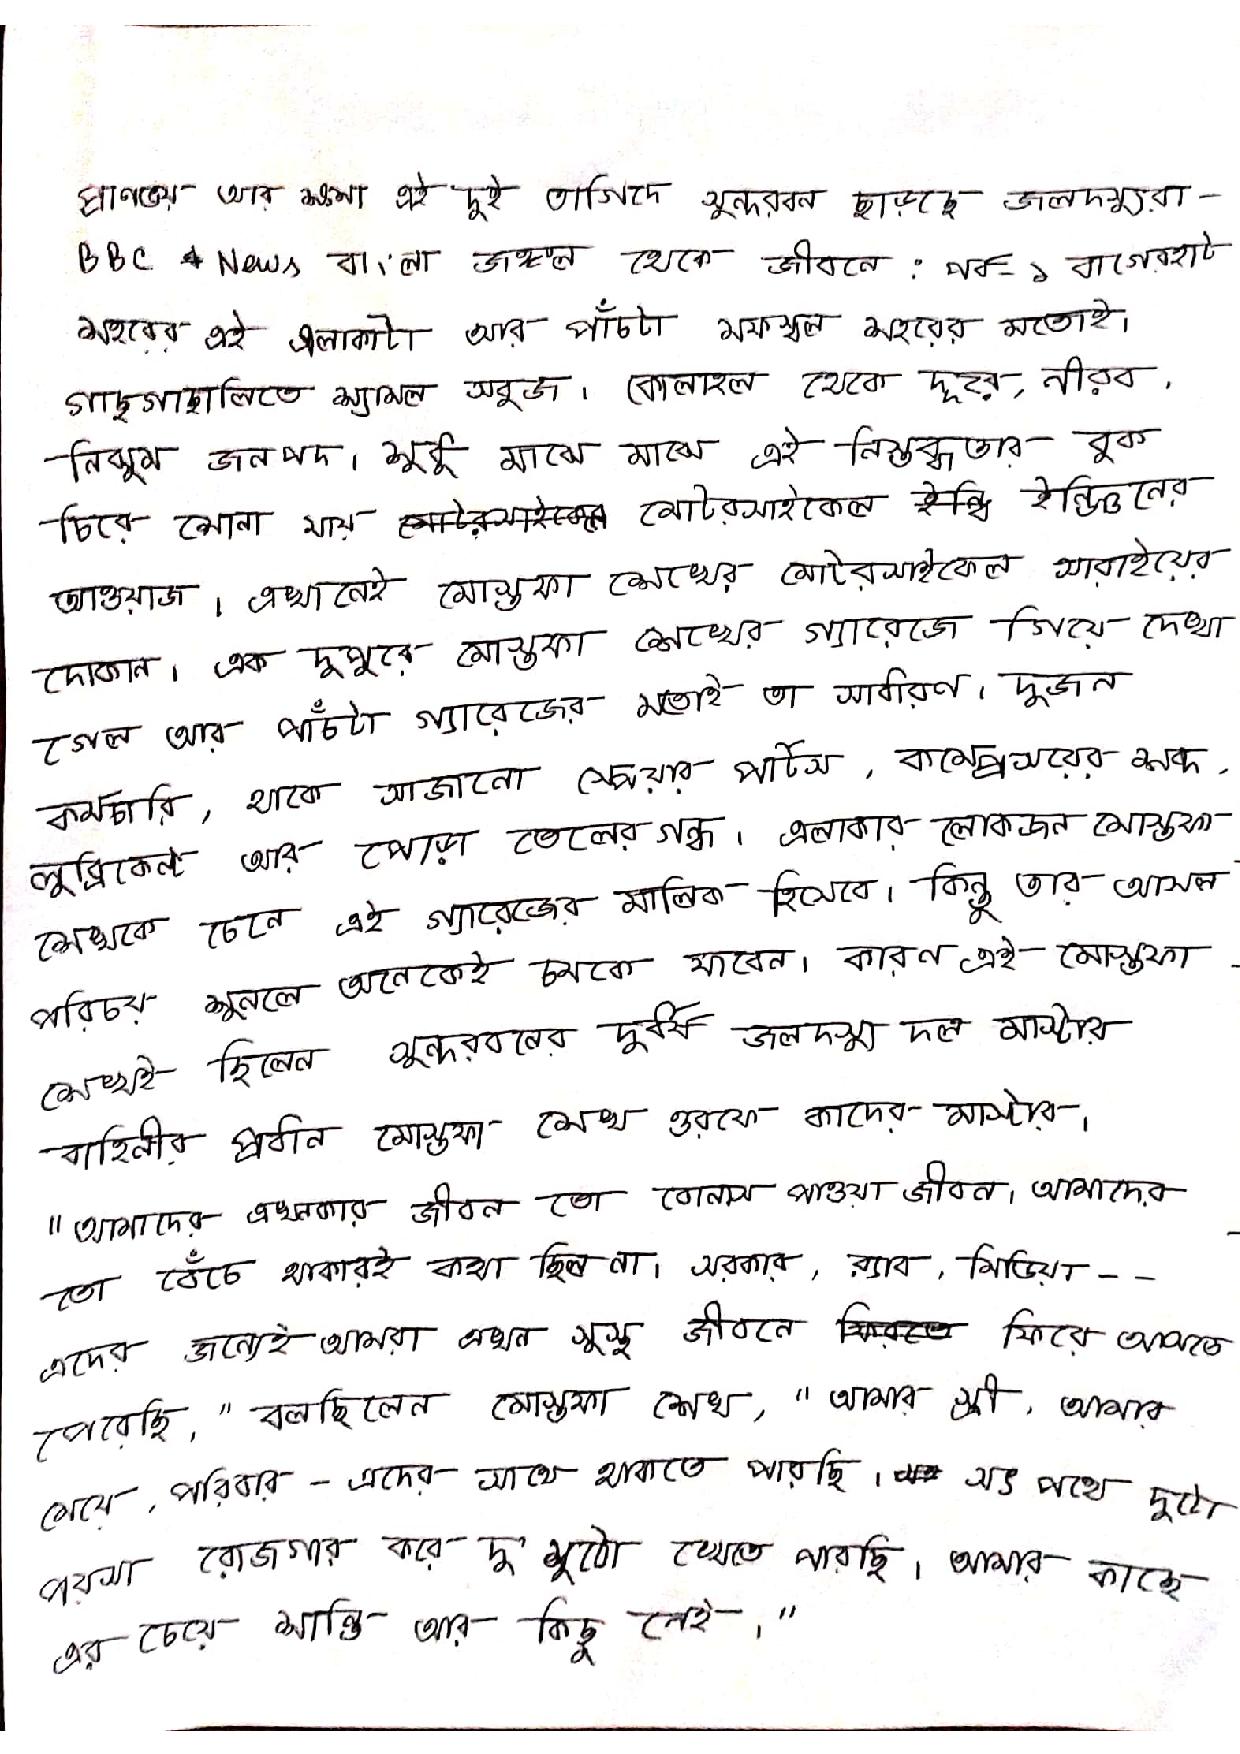 প্রাণভয় আর ক্ষমা এই দুই তাগিদে সুন্দরবন ছাড়ছে জলদস্যুরা -
BBC News বাংলা জঙ্গল থেকে জীবনে : পর্ব- ১ বাগেরহাট
শহরের এই এলাকাটা আর পাঁচটা মফস্বল শহরের মতোই।
গাছগাছালিতে শ্যামল সবুজ। কোলাহল থেকে দূরে, নীরব,
নিঝুম জনপদ। শুধু মাঝে মাঝে এই নিস্তব্ধতার বুক
চিরে শোনা যায় মোটরসাইকেল ইন্জিনের
আওয়াজ। এখানেই মোস্তফা শেখের মোটরসাইকেল সারাইয়ের
দোকান। এক দুপুরে মোস্তফা শেখের গ্যারেজে গিয়ে দেখা
গেল আর পাঁচটা গ্যারেজের মতোই তা সাধারণ। দুজন
কর্মচারি, থাকে সাজানো স্পেয়ার পার্টস, কম্প্রেসরের শব্দ,
লুব্রিকেন্ট আর পোড়া তেলের গন্ধ। এলাকার লোকজন মোস্তফা
শেখকে চেনে এই গ্যারেজের মালিক হিসেবে। কিন্তু তার আসল
পরিচয় শুনলে অনেকেই চমকে যাবেন। কারণ এই মোস্তফা
শেখই ছিলেন সুন্দরবনের দুর্ধর্ষ জলদস্যু দল মাস্টার
বাহিনীর প্রধান মোস্তফা শেখ ওরফে কাদের মাস্টার।
"আমাদের এখনকার জীবন তো বোনাস পাওয়া জীবন। আমাদের
তো বেঁচে থাকারই কথা ছিল না। সরকার, র‍্যাব, মিডিয়া - -
এদের জন্যেই আমরা এখন সুস্থ জীবনে ফিরে আসতে
পেরেছি," বলছিলেন মোস্তফা শেখ, "আমার স্ত্রী, আমার
মেয়ে, পরিবার - এদের সাথে থাকতে পারছি। সৎ পথে দুটো
পয়সা রোজগার করে দু' মুঠো খেতে পারছি। আমার কাছে
এর চেয়ে শান্তি আর কিছু নেই।"